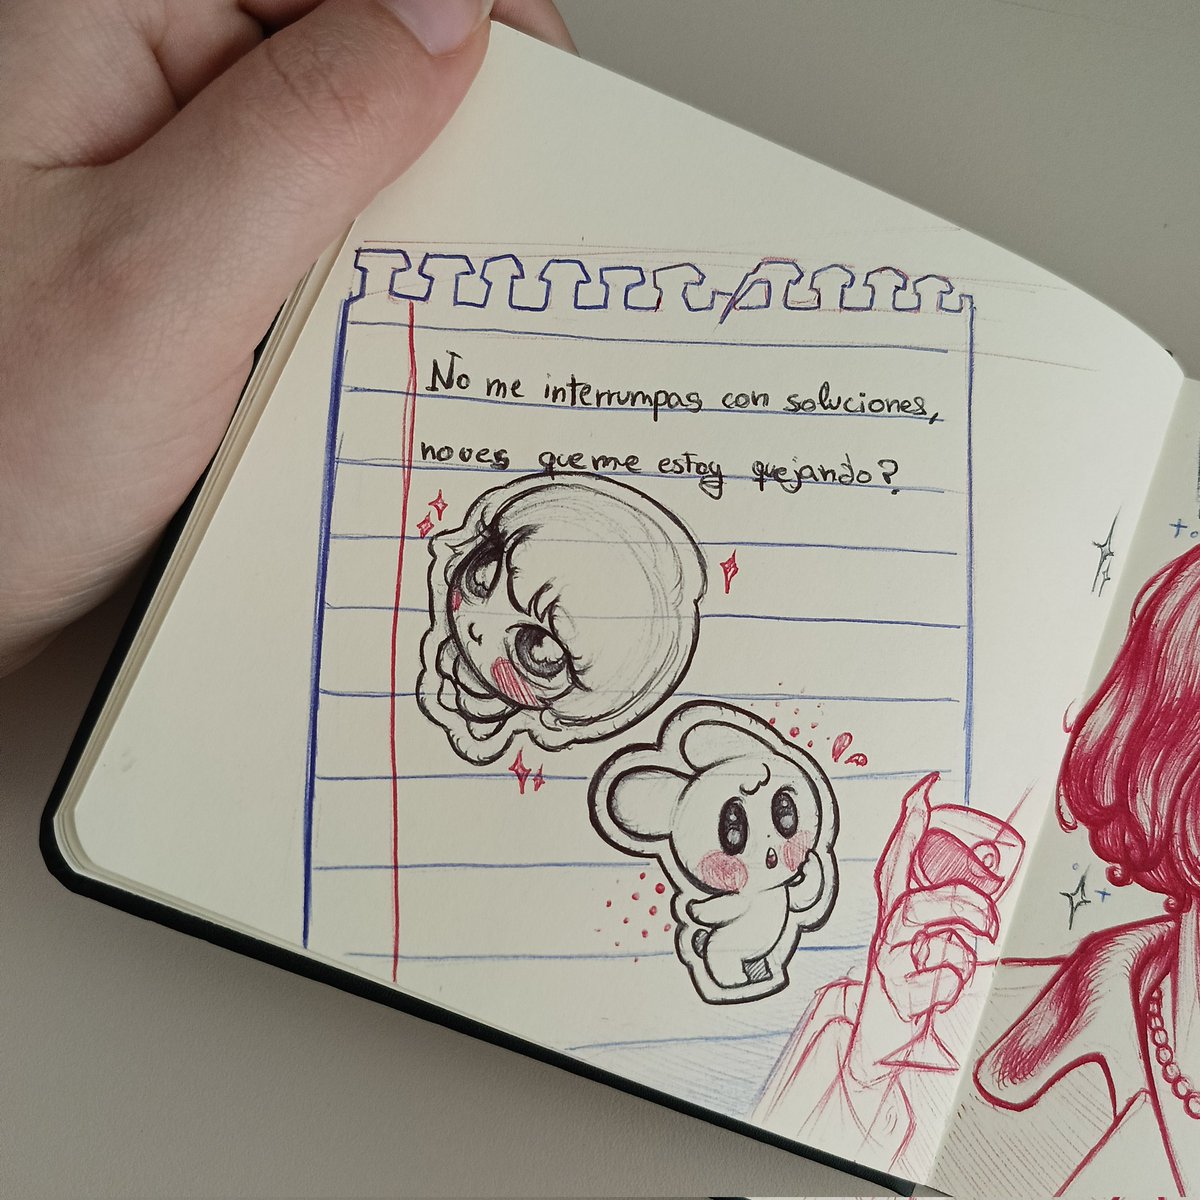 No me interrumpas con soluciones,
no ves que me estoy quejando?